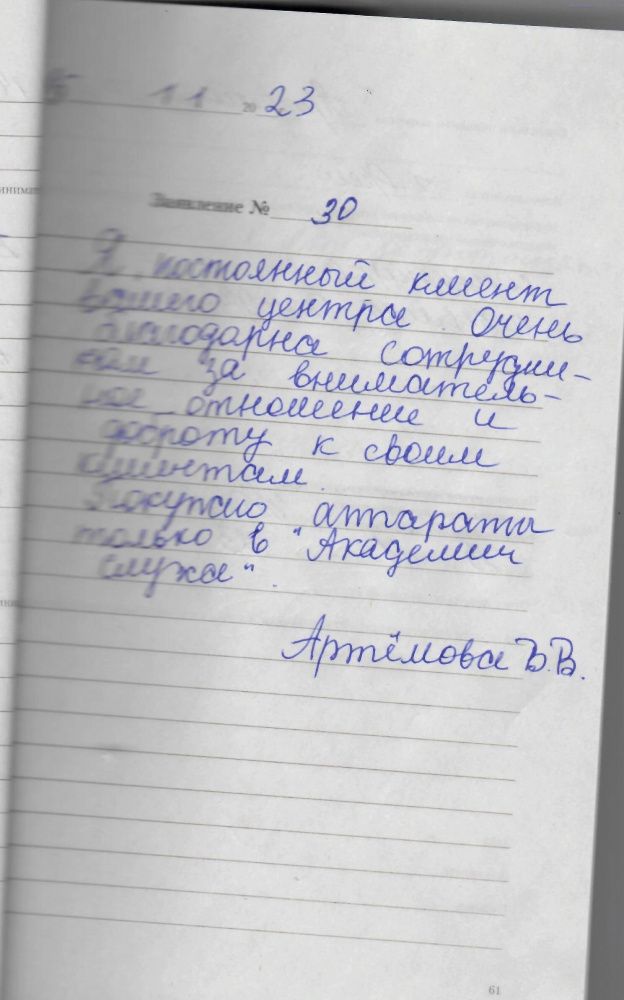 11 2023
Заявление № 30
Я постоянный клиент
вашего центра. Очень
благодарна сотрудни-
кам за вниматель-
ное отношение и
доброту к своим
клиентам.
Покупаю аппараты
только в "Академии
слуха".
Артёмова В.В.
61